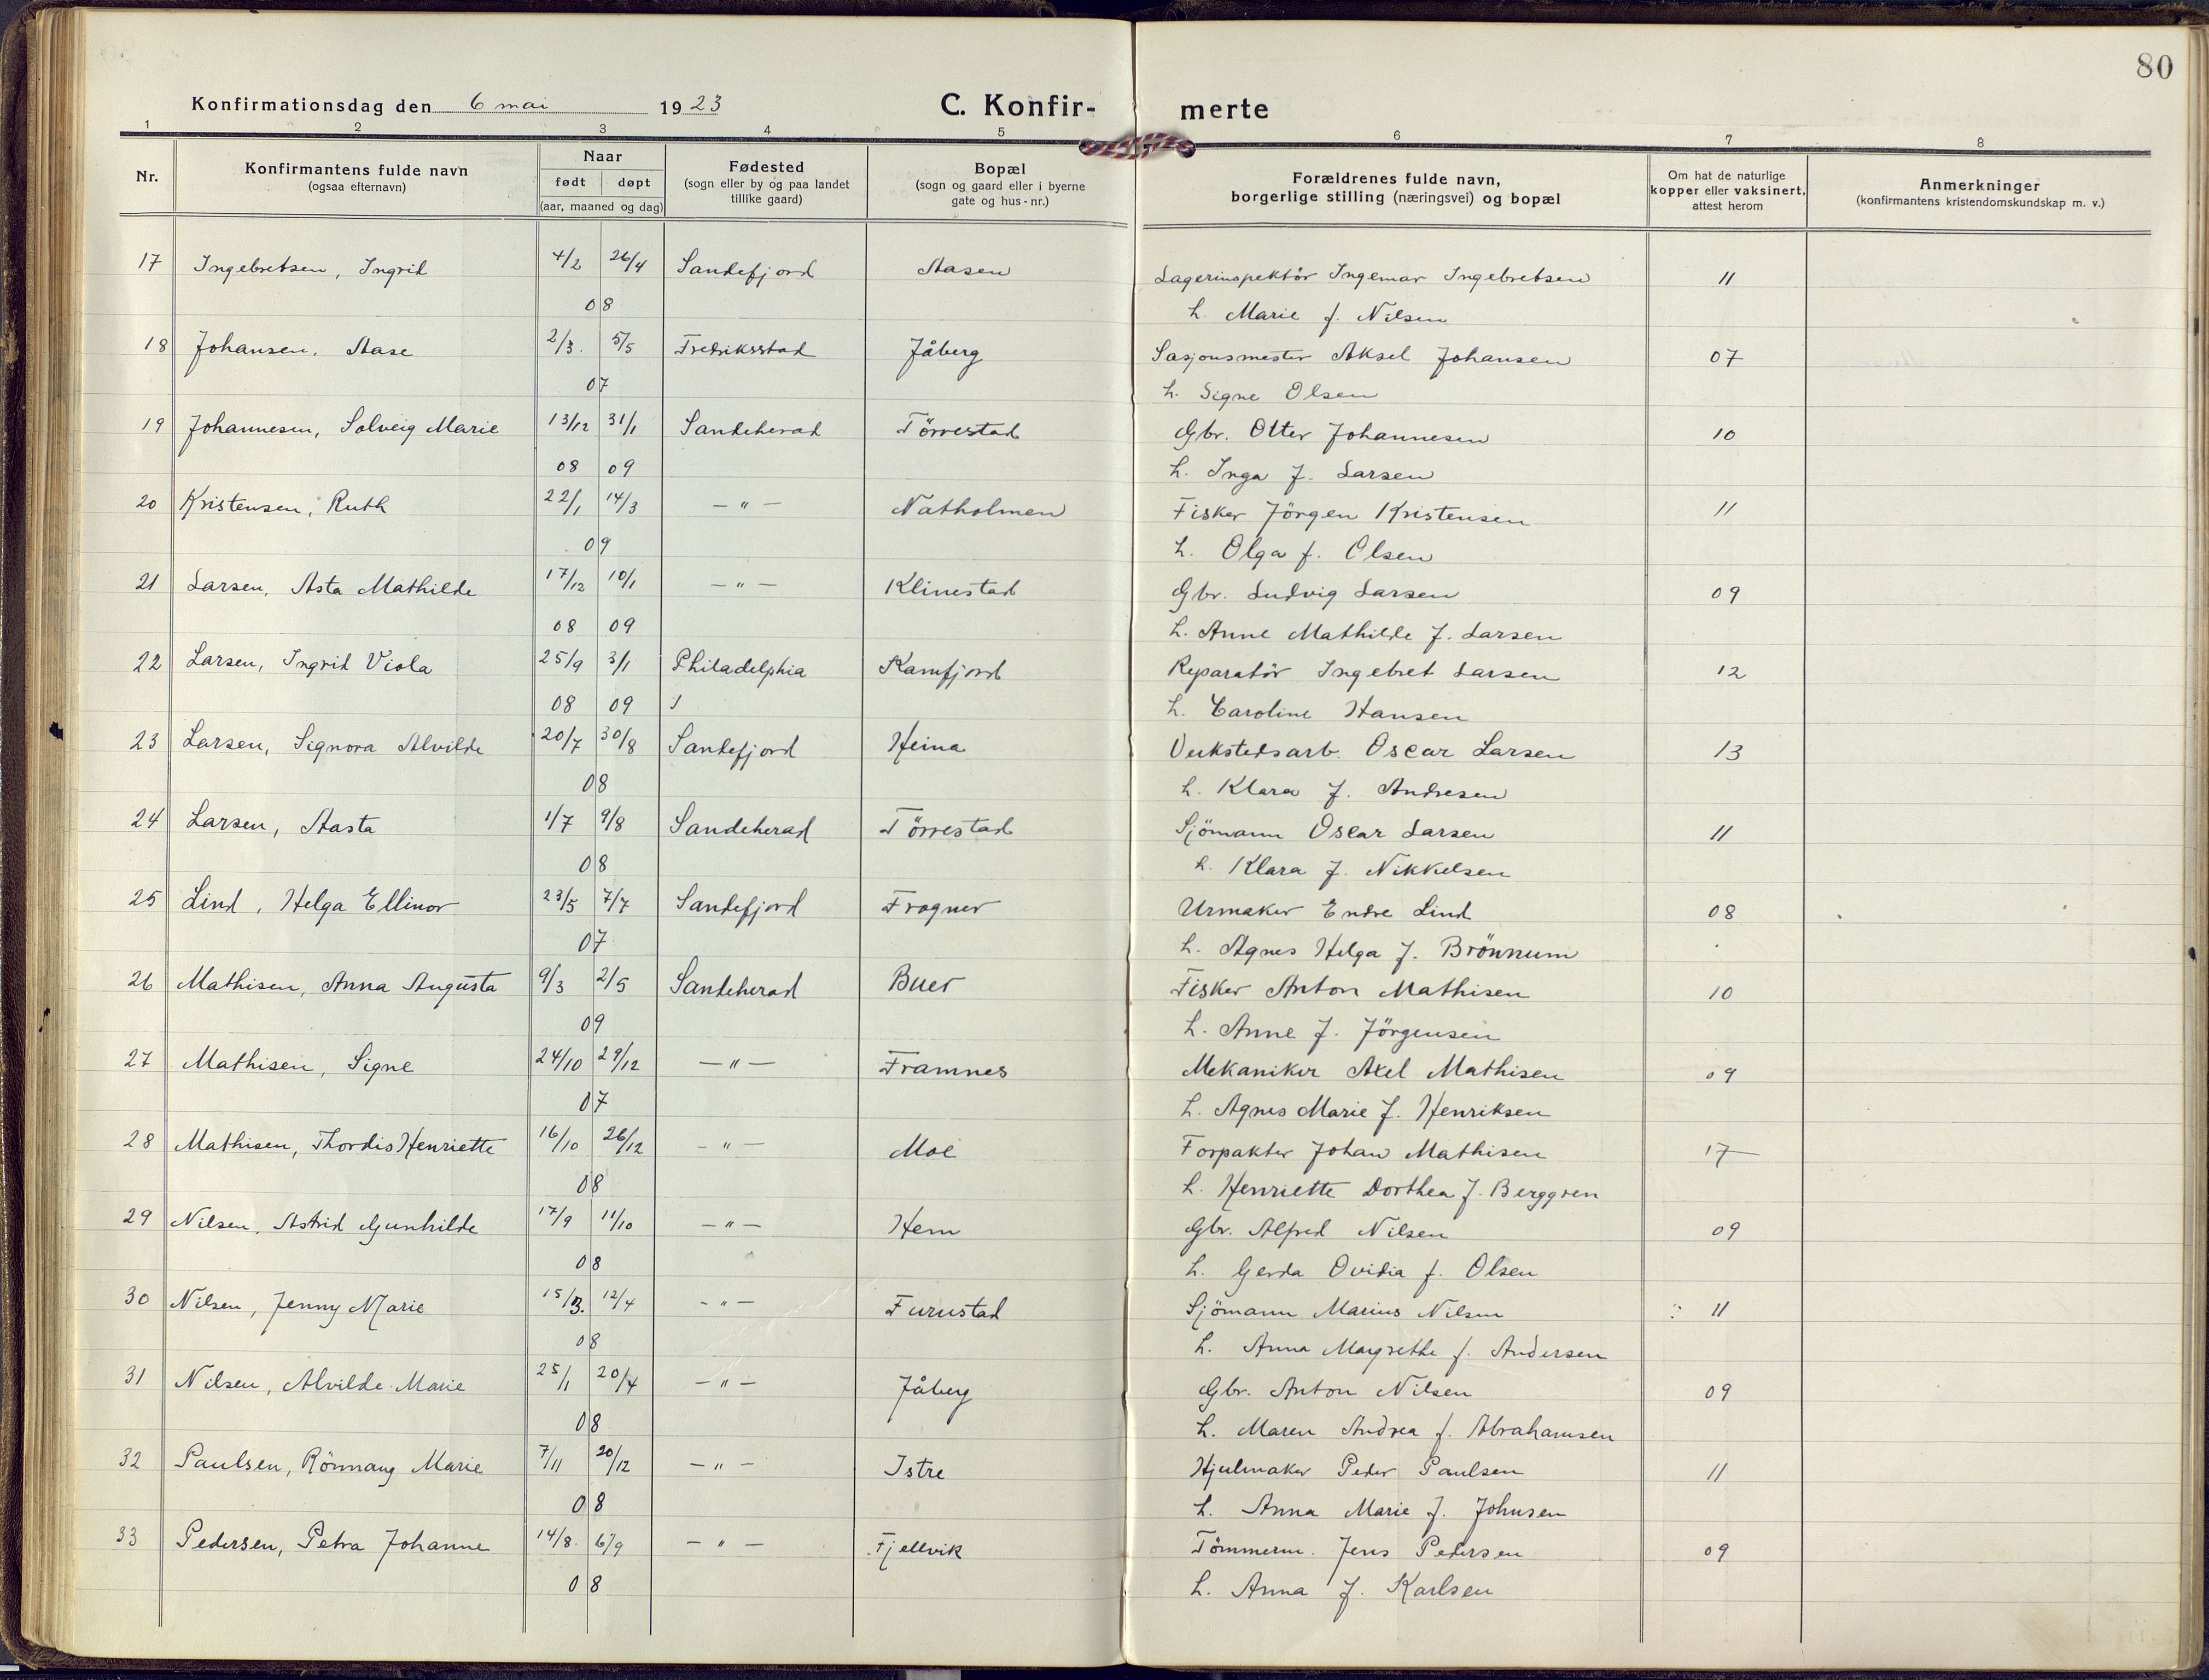 80
Konfirmationsdag den 6 mai 1923
C. Konfir- merte
1 2 3 4 5 6 7 8
Nr.
Konfirmantens fulde navn
(ogsaa efternavn)
Naar
født døpt
(aar, maaned og dag)
Fødested
(sogn eller by og paa landet
tillike gaard)
Bopæl
(sogn og gaard eller i byerne
gate og hus-nr.)
Forældrenes fulde navn,
borgerlige stilling (næringsvei) og bopæl
Om hat de naturlige
kopper eller vaksinert,
attest herom
Anmerkninger
(konfirmantens kristendomskundskap m. v.)
17 Ingebretsen, Ingrid 4/2 26/4 Sandefjord Aasen Lagerinspektör Ingemar Ingebretsen 11
08 h. Marie f. Nilsen
18 Johansen, Aase 2/3. 5/5 Fredriksstad Jåberg Sasjonsmester Aksel Johansen 07
07 h. Signe Olsen
19 Johannesen, Solveig Marie 13/12 31/1 Sandeherad Törrestad Gbr. Otter Johannesen 10
08 09 h. Inga f. Larsen
20 Kristensen, Ruth 22/1 14/3 — " — Natholmen Fisker Jörgen Kristensen 11
09 h. Olga f. Olsen
21 Larsen, Asta Mathilde 17/12 10/1 — " — Klinestad Gbr. Ludvig Larsen 09
08 09 h. Anne Mathilde f. Larsen
22 Larsen, Ingrid Viola 25/9 3/1 Philadelphia Kamfjord Reparatör Ingebret Larsen 12
08 09 h. Caroline Hansen
23 Larsen, Signora Alvilde 20/7 30/8 Sandefjord Heina Verkstedsarb. Oscar Larsen 13
08 h. Klara f. Andresen
24 Larsen, Aasta 1/7 9/8 Sandeherad Törrestad Sjömann Oscar Larsen 11
08 h. Klara f. Nikkelsen
25 Lind, Helga Ellinor 23/5 7/7 Sandefjord Fragner Urmaker Endre Lind 08
07 h. Agnes Helga f. Brönnum
26 Mathisen, Anna Augusta 9/3 2/5 Sandeherad Buer Fisker Anton Mathisen 10
09 h. Anne f. Jörgensen
27 Mathisen, Signe 24/10 29/12 — " — Framnes Mekaniker Axel Mathisen 09
07 h. Agnes Marie f. Henriksen
28 Mathisen, Thordis Henriette 16/10 26/12 — " — Moe Forpakter Johan Mathisen 17
08 h. Henriette Dorthea f. Berggren
29 Nilsen, Astrid Gunhilde 17/9 11/10 — " — Hem Gbr. Alfred Nilsen 09
08 h. Gerda Ovidia f. Olsen
30 Nilsen, Jenny Marie 15/3. 12/4 — " — Furustad Sjömann Marius Nilsen 11
08 h. Anna Margrethe f. Andersen
31 Nilsen, Alvilde Marie 25/1 20/4 — " — Jåberg Gbr. Anton Nilsen 09
08 h. Maren Andrea f. Abrahamsen
32 Paulsen, Rönnaug Marie 7/11 20/12 — " — Istre Hjulmaker Peder Paulsen 11
08 h. Anna Marie f. Johnsen
33 Pedersen, Petra Johanne 14/8. 6/9 — " — Fjellvik Tömmerm. Jens Pedersen 09
08 h. Anna f. Karlsen